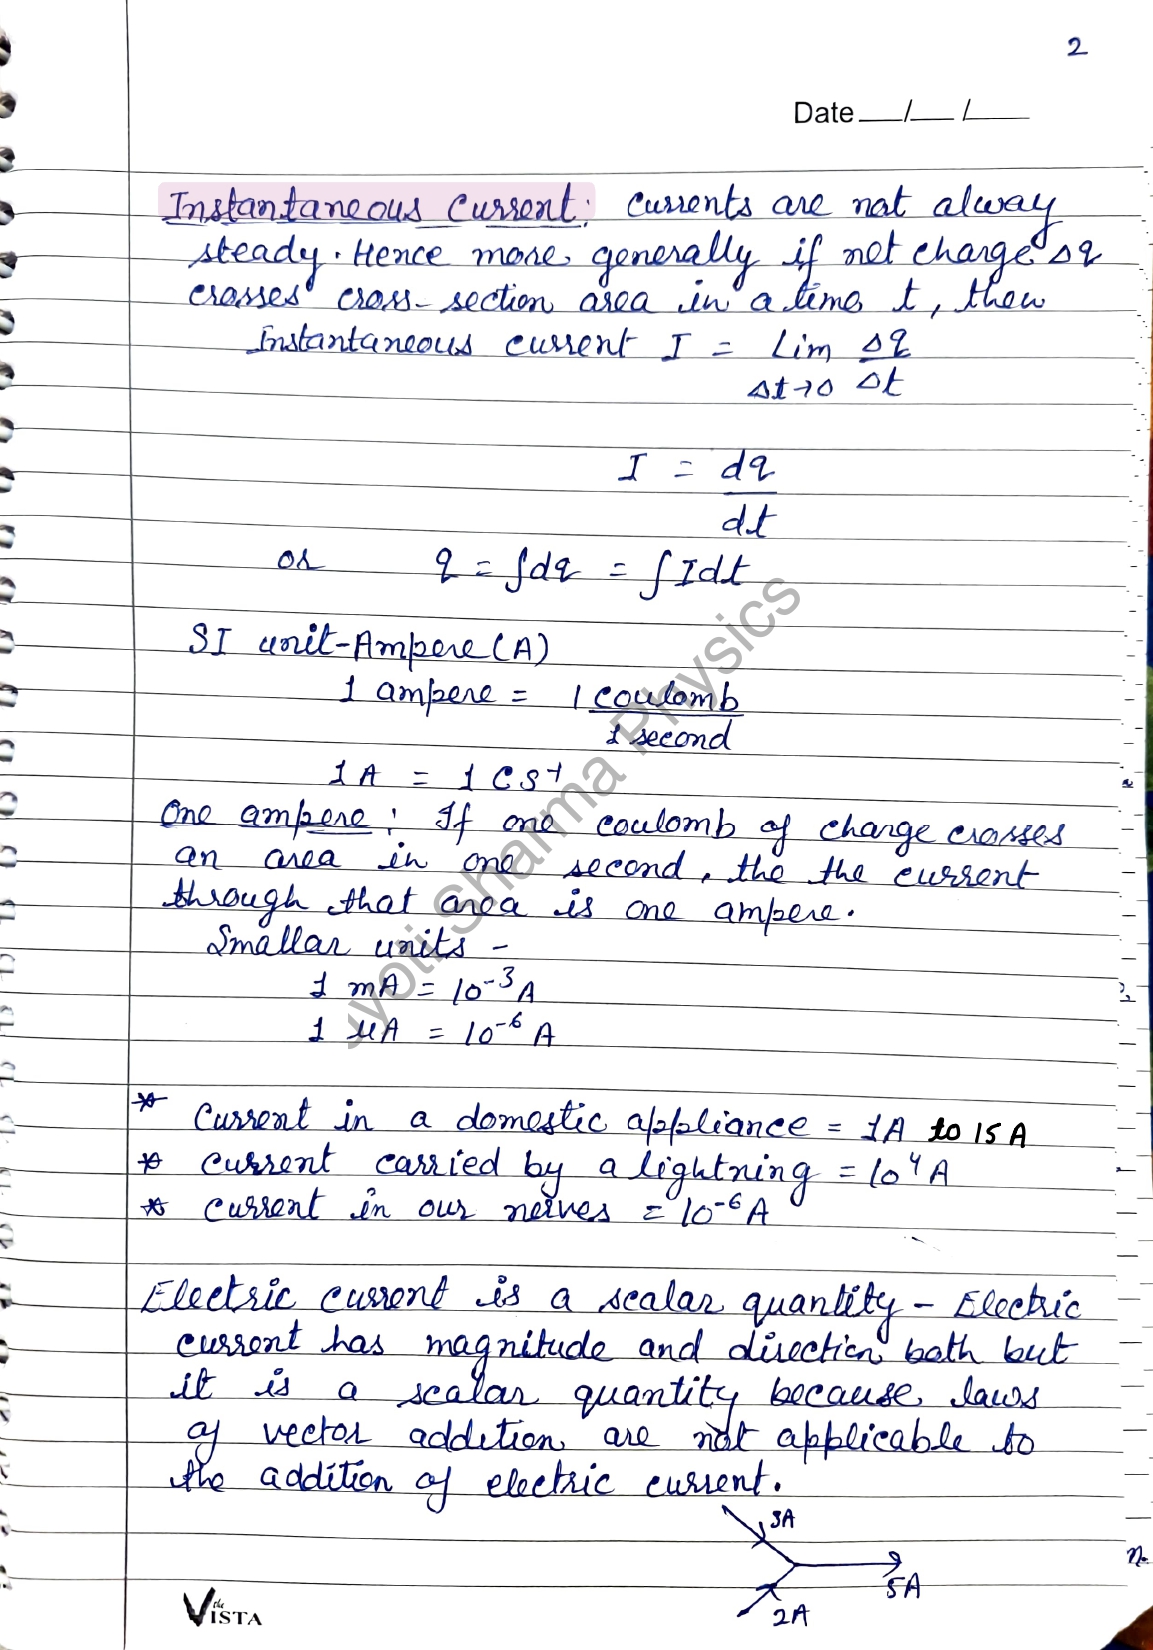 2
Date __/__/__
Instantaneous Current: Currents are not alway
steady. Hence more generally if net charge Δq
crosses cross-section area in a time t, then
Instantaneous current I = Lim Δq
Δt→0 Δt
I = dq
dt
or q = ∫dq = ∫Idt
SI unit-Ampere(A)
1 ampere = 1 coulomb
1 second
1A = 1 CS⁻¹
One ampere: If one coulomb of charge crosses
an area in one second, the the current
through that area is one ampere.
Smallar units -
1 mA = 10⁻³A
1 μA = 10⁻⁶ A
* Current in a domestic appliance = 1A to 15A
* Current carried by a lightning = 10⁴A
* Current in our nerves = 10⁻⁶A
Electric current is a scalar quantity - Electric
current has magnitude and direction both but
it is a scalar quantity because laws
of vector addition are not applicable to
the addition of electric current.
3A
5A
2A
the
VISTA
Jyoti Sharma Physics